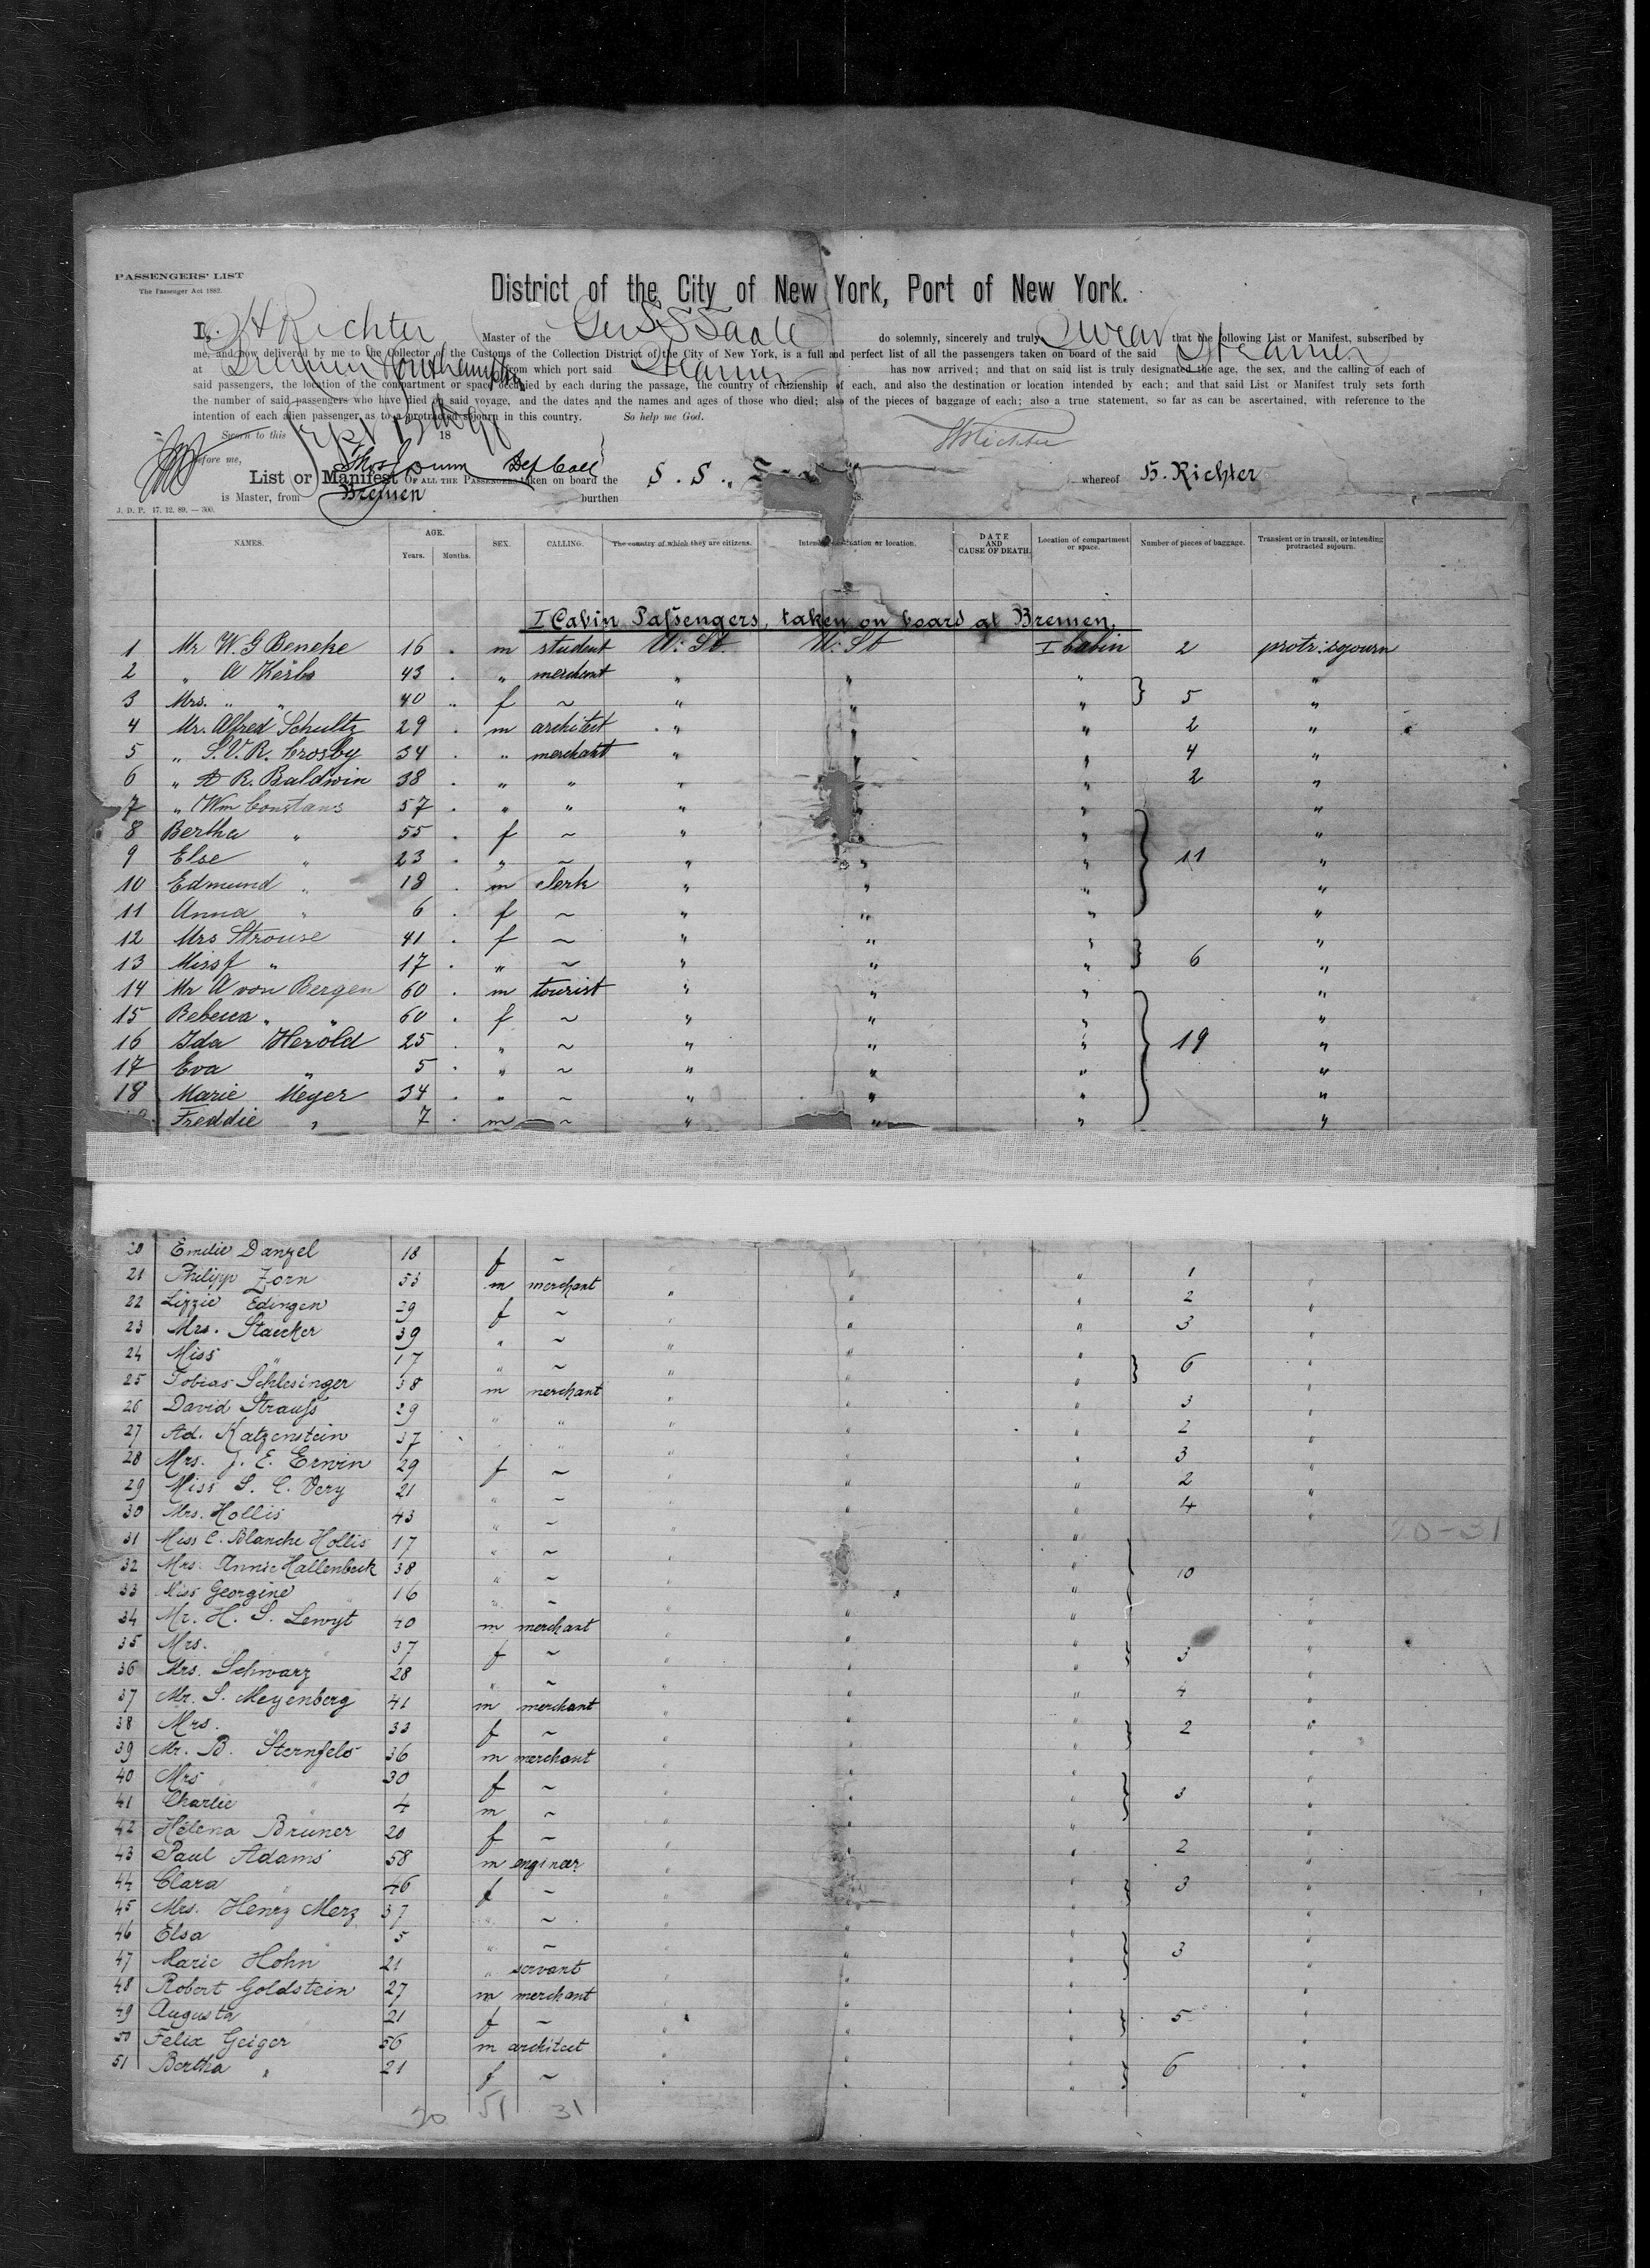 PASSENGERS' LIST
The Passenger Act 1882.
District of the City of New York, Port of New York.
I, H Richter Master of the Ger SS Saale do solemnly, sincerely and truly swear that the following List or Manifest, subscribed by
me, and now delivered by me to the Collector of the Customs of the Collection District of the City of New York, is a full and perfect list of all the passengers taken on board of the said Steamer
at Bremen Southampton from which port said Steamer has now arrived; and that on said list is truly designated the age, the sex, and the calling of each of
said passengers, the location of the compartment or space occupied by each during the passage, the country of citizienship of each, and also the destination or location intended by each; and that said List or Manifest truly sets forth
the number of said passengers who have died on said voyage, and the dates and the names and ages of those who died; also of the pieces of baggage of each; also a true statement, so far as can be ascertained, with reference to the
intention of each alien passenger as to a protracted sojourn in this country. So help me God.
Sworn to this 18 HRichter
before me, Thos Dunn Dep Coll
List or Manifest OF ALL THE PASSENGERS taken on board the S. S. „ whereof H. Richter
is Master, from Bremen burthen
J. D. P. 17. 12. 89. — 300.
NAMES. AGE. Years. Months. SEX. CALLING. The country of which they are citizens. Intended destination or location. DATE AND CAUSE OF DEATH. Location of compartment or space. Number of pieces of baggage. Transient or in transit, or intending protracted sojourn.
I Cabin Passengers, taken on board at Bremen.
1 Mr W. G Beneke 16 . m student U. St. U. St I Cabin 2 protr. sojourn
2 „ A Kerbs 43 . „ merchant „ „ „ „
3 Mrs. „ „ 40 „ f ~ „ „ „ 5 „
4 Mr. Alfred Schultz 29 . m architect „ „ „ 2 „
5 „ S. V. R. Crosby 34 . „ merchant „ „ „ 4 „
6 „ A R. Baldwin 38 . „ „ „ „ 2 „
7 „ Wm Constans 57 . „ „ „ „ „
8 Bertha „ 55 . f ~ „ „ „
9 Else „ 23 . „ ~ „ „ „ 11 „
10 Edmund „ 18 . m clerk „ „ „ „
11 Anna „ 6 . f ~ „ „ „ „
12 Mrs Strouse 41 . f ~ „ „ „ „
13 Miss f „ 17 . „ ~ „ „ „ 6 „
14 Mr A von Bergen 60 . m tourist „ „ „ „
15 Rebecca „ „ 60 . f ~ „ „ „ „
16 Ida Herold 25 . „ ~ „ „ „ 19 „
17 Eva „ 5 . „ ~ „ „ „ „
18 Marie Meyer 34 . „ ~ „ „ „ „
Freddie „ 7 . m ~ „ „ „ „
20 Emilie Danzel 18 f ~ „ „ „ 1 „
21 Philipp Zorn 53 m merchant „ „ „ 2 „
22 Lizzie Edingen 29 f ~ „ „ „ 3 „
23 Mrs. Staecker 39 „ ~ „ „ „
24 Miss „ 17 „ ~ „ „ „ 6 „
25 Tobias Schlesinger 38 m merchant „ „ „ 3 „
26 David Strauss 29 „ „ „ „ „ 2 „
27 Ad. Katzenstein 37 „ „ „ „ „ 3 „
28 Mrs. J. E. Erwin 29 f ~ „ „ „ 2 „
29 Miss S. C. Very 21 „ ~ „ „ „ 4 „
30 Mrs. Hollis 43 „ ~ „ „ „
20-31
31 Miss C. Blanche Hollis 17 „ ~ „ „ „
32 Mrs. Annie Hallenbeck 38 „ ~ „ „ „ 10
33 Miss Georgine „ 16 „ ~ „ „ „ „
34 Mr. H. S. Lewyt 40 m merchant „ „ „ „
35 Mrs. „ 37 f ~ „ „ „ 3 „
36 Mrs. Schwarz 28 „ ~ „ „ „ 4 „
37 Mr. S. Meyenberg 41 m merchant „ „ „ „
38 Mrs. „ 33 f ~ „ „ „ 2 „
39 Mr. B. Sternfels 36 m merchant „ „ „ „
40 Mrs „ „ 30 f ~ „ „ „ 3 „
41 Charlie „ 4 m ~ „ „ „ „
42 Helena Bruner 20 f ~ „ „ „ 2 „
43 Paul Adams 58 m engineer „ „ „ „
44 Clara „ 46 f ~ „ „ „ 3 „
45 Mrs. Henry Merz 37 „ ~ „ „ „ „
46 Elsa „ 5 „ ~ „ „ „ 3 „
47 Marie Hohn 21 „ servant „ „ „ „
48 Robert Goldstein 27 m merchant „ „ „ „
49 Augusta „ 21 f ~ „ „ „ 5 „
50 Felix Geiger 56 m architect „ „ „ „
51 Bertha „ 21 f ~ „ „ „ 6 „
20 51 31